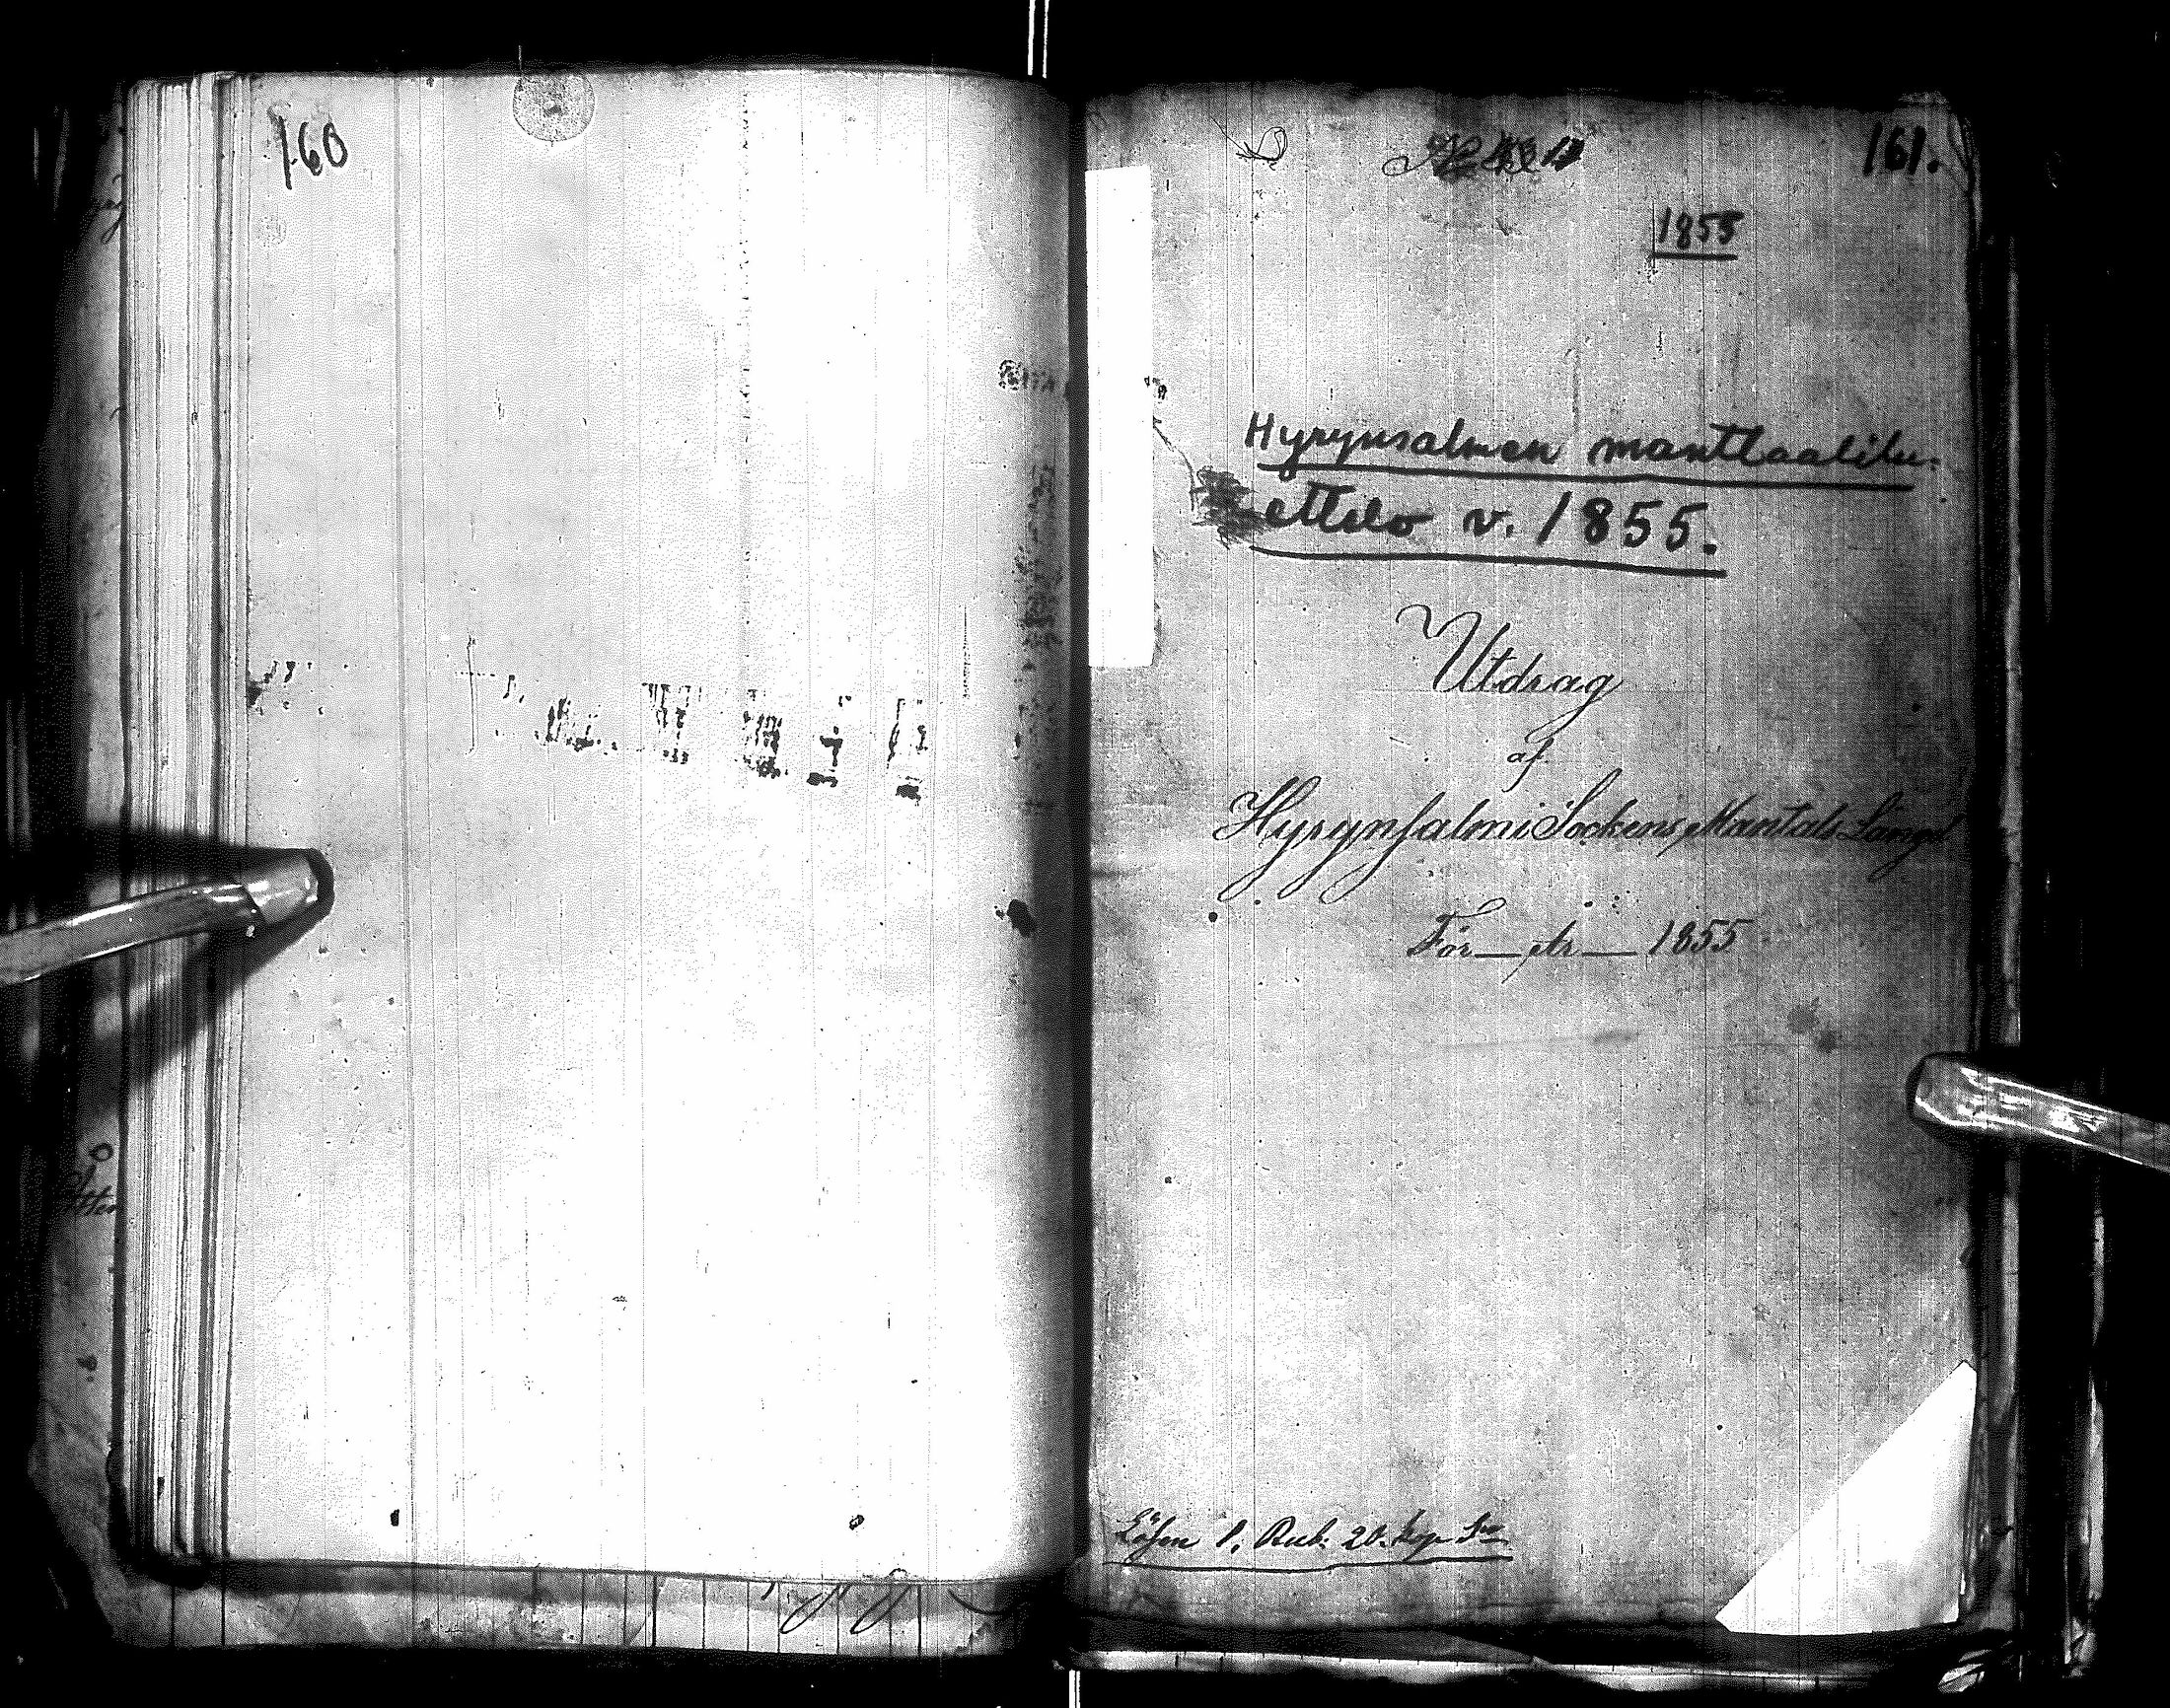 160
161.
1855
Hyrynsalmen manttaalilu-
ettelo v. 1855.
Utdrag
af
Hyrynsalmi Sockens Mantals Längd
För _ År _ 1855
Lösen 1. Rub. 20. kop. Sr